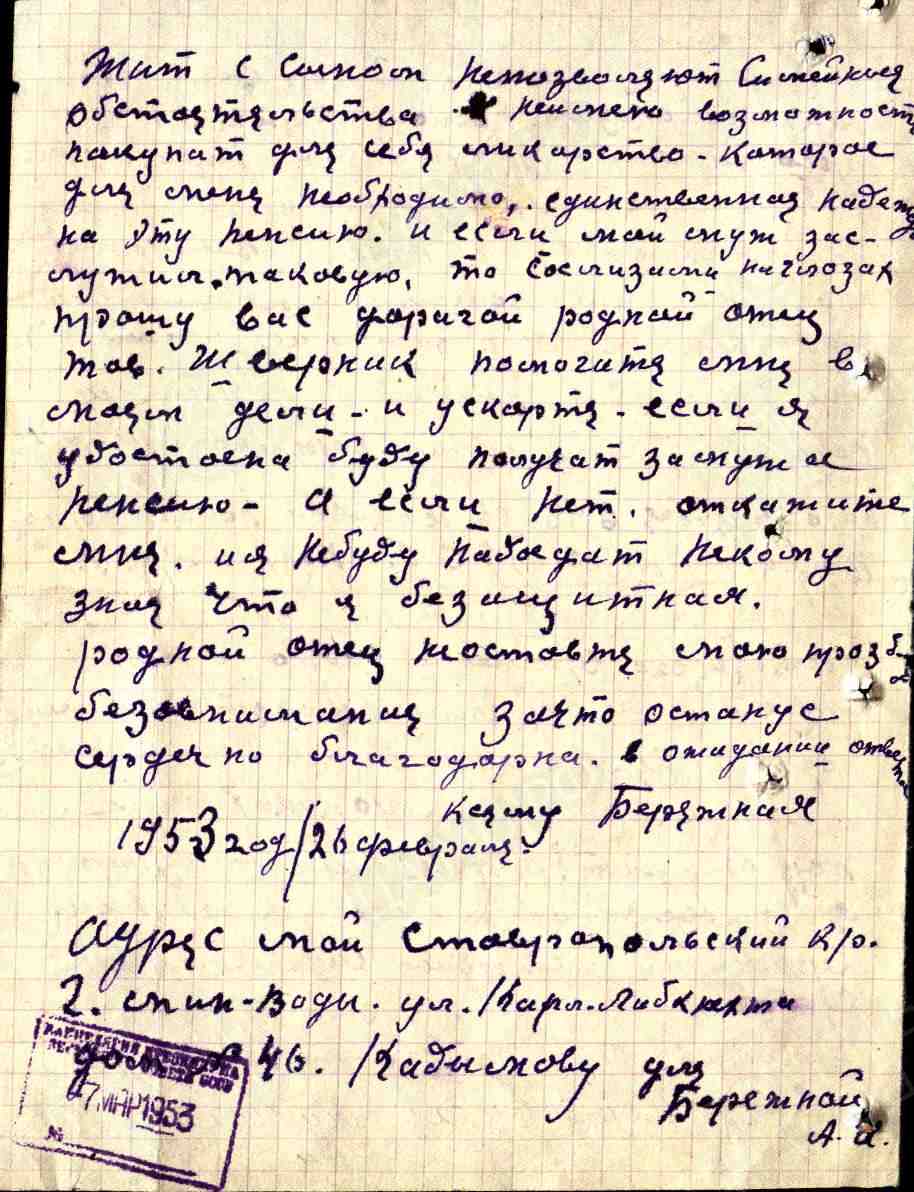 Жит с сыном непозволяют Симейныя
обстоятяльства неимею возможност
покупат для себя микарство - которое
для меня необходимо, единственная надеж
на эту пенсию. и если мой муж зас-
лужил таковую, то сослизами наглозах
прошу вас дорагой родной отец
тов. Шверник помогитя мня в
моем дели - и ускортя - если я
удостоена буду получат замужа
пенсию - а если нет. откажите
мня. ия небуду надоедат некому
зная что я безащитная.
родной отец неоставтя мою прозб
безвнимания зачто останус
сердечно благодарна. в ожидании ответа
к сему Бережная
1953 год/26 февраля.
Адряс мой Ставропольский кр.
г. мин-Воды. ул. Карл-Либкнехта
дом № 46. Кадымову для
Бережной
А.
7 МАР 1953
№